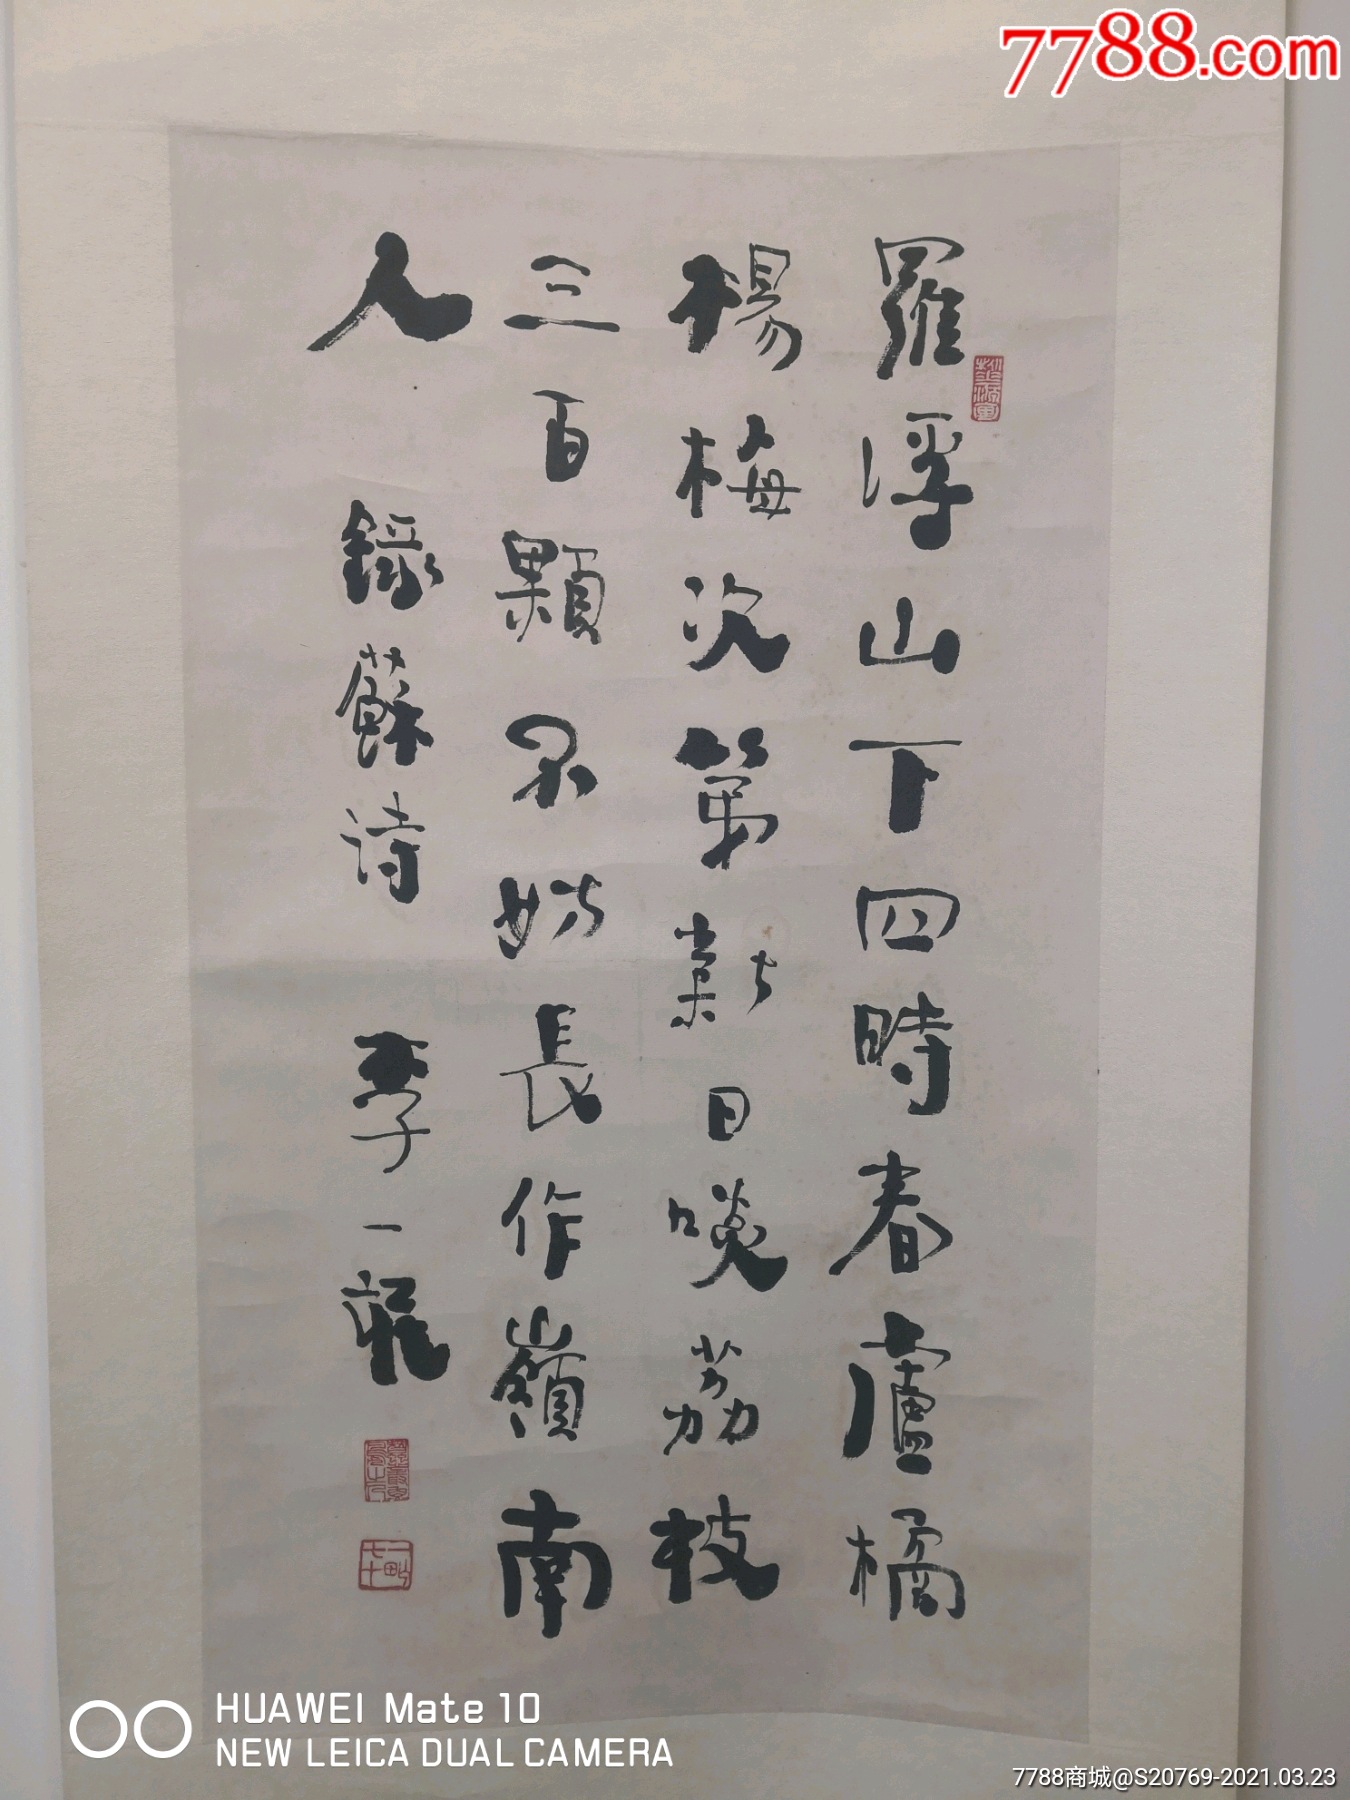 7788.com
羅浮山下四時春廬橘
楊梅次第新日啖荔枝
三百顆不妨長作嶺南
人 錄蘇詩 李一
HUAWEI Mate 10
NEW LEICA DUAL CAMERA
7788商城@S20769-2021.03.23